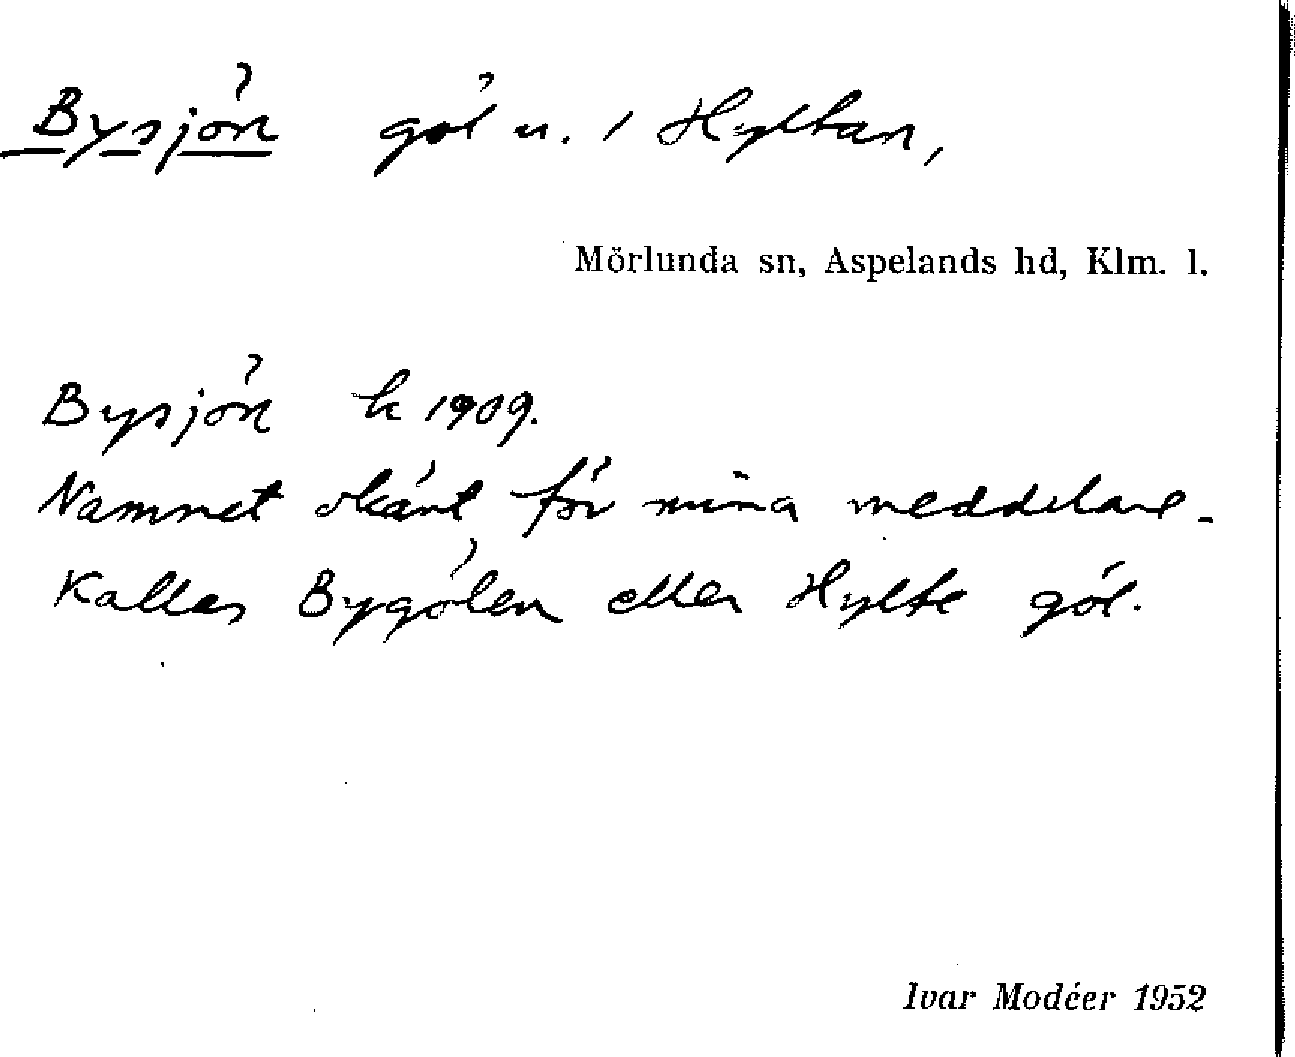 Bysjön göl u. / Hyltan,
Mörlunda sn, Aspelands hd, Klm. l.
Bysjön k 1909.
Namnet okänt för mina meddelare.
Kallas Bygölen eller Hylte göl.
Ivar Modéer 1952